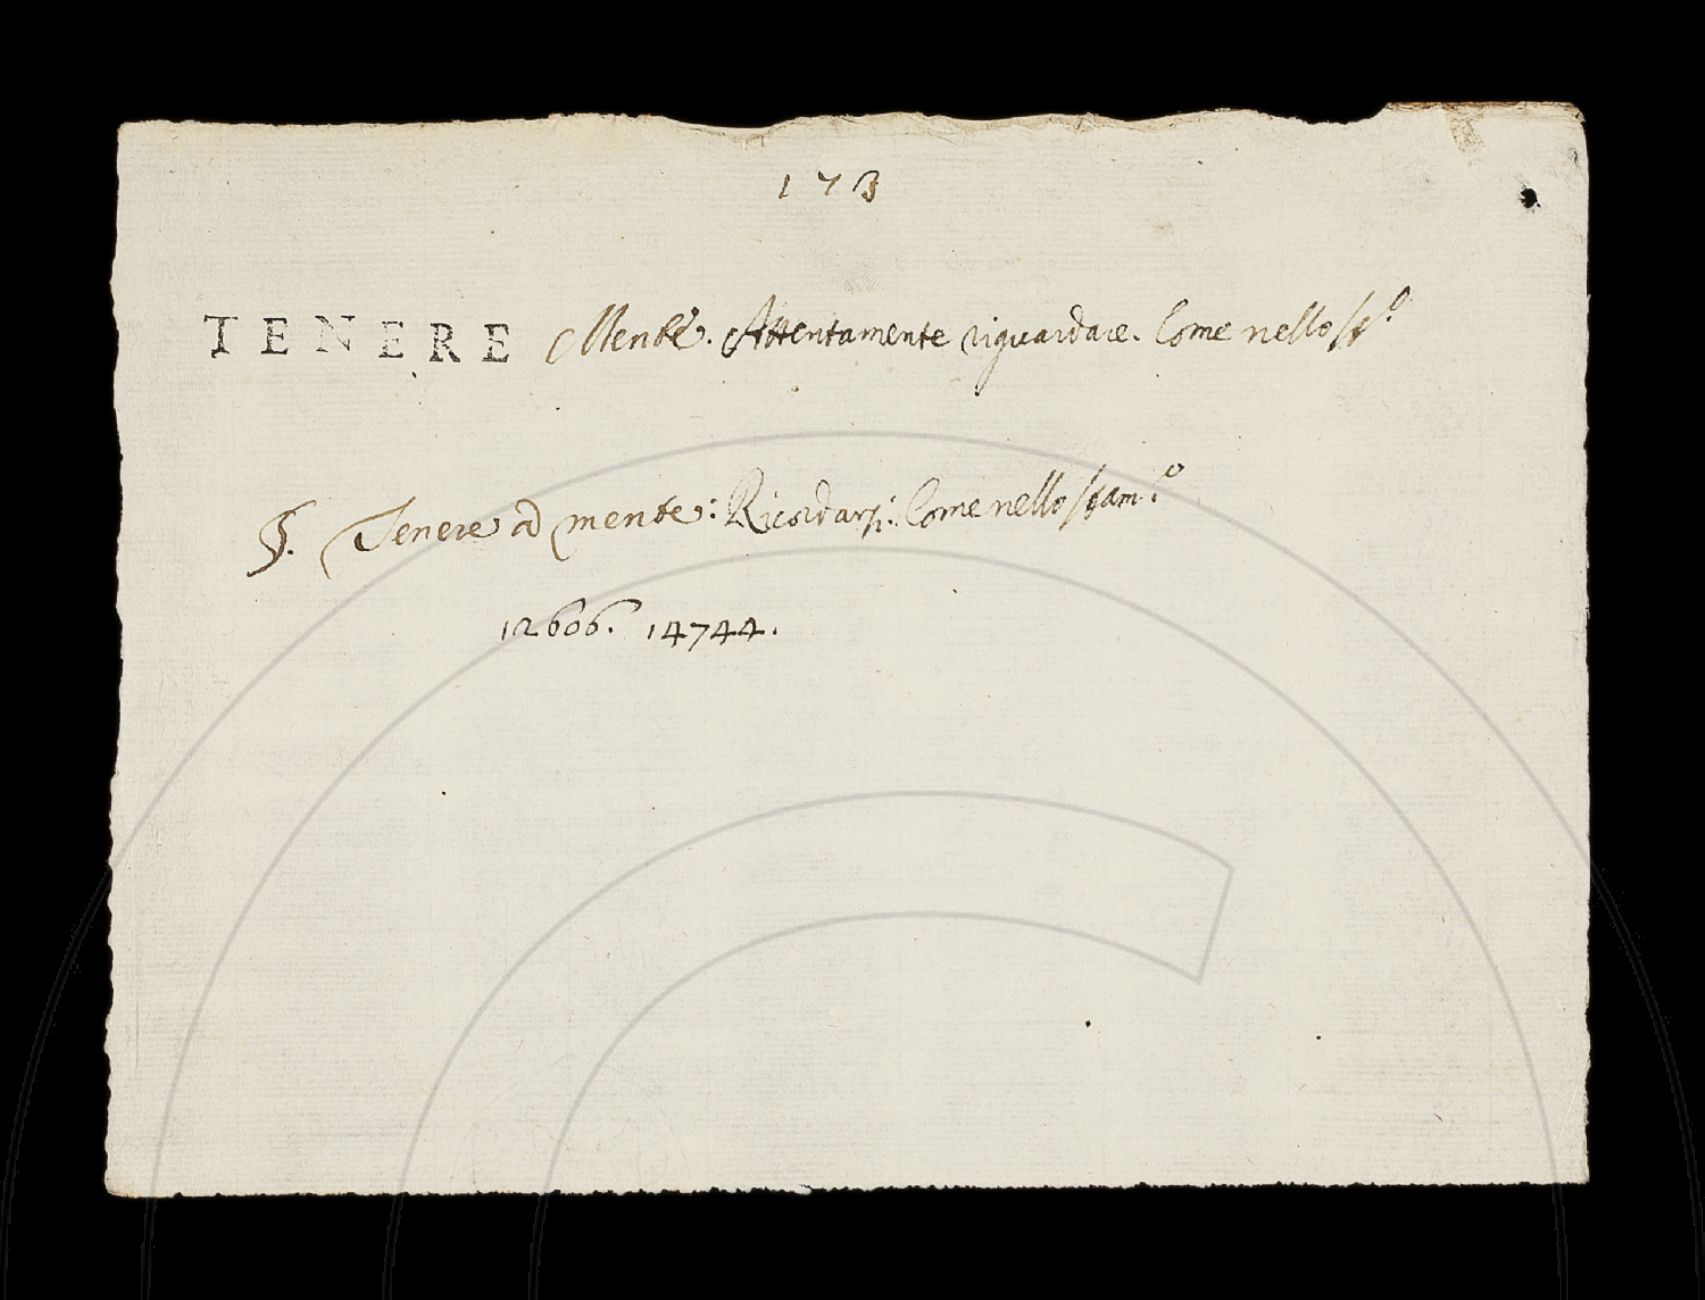 173
TENERE Mente. Attentamente riguardare. Come nello st.º
§. Tenere a mente: Ricordarsi: Come nello stam.º
12606. 14744.